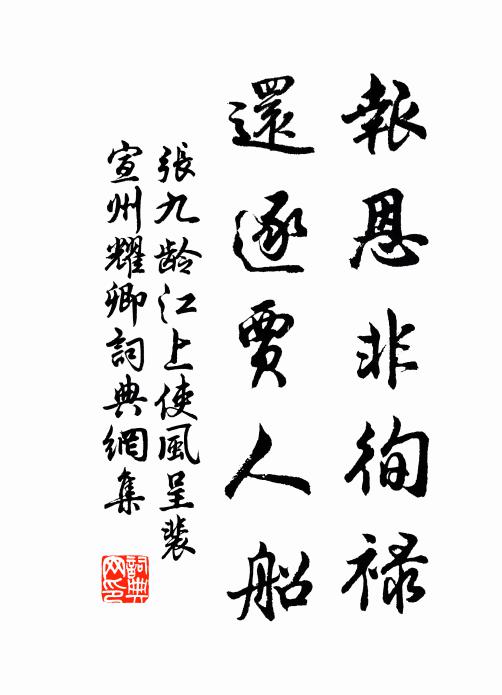 報恩非徇祿
還逐賈人船
張九齡江上使風呈裴
宣州耀卿詞典網集
詞典
网印